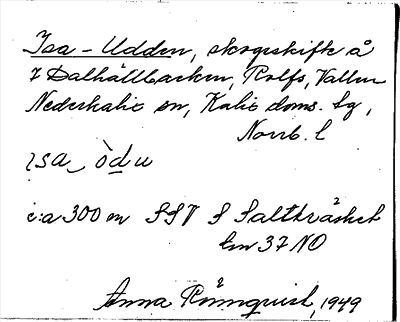 Isa-Udden, skogsskifte å
7 Dalhällbacken, Rolfs, Vallen
Nederkalix sn, Kalix doms. tg,
Norrb. l
c:a 300 m SSV S Salträsket
Em 37 NO
Anna Rönnquist, 1949